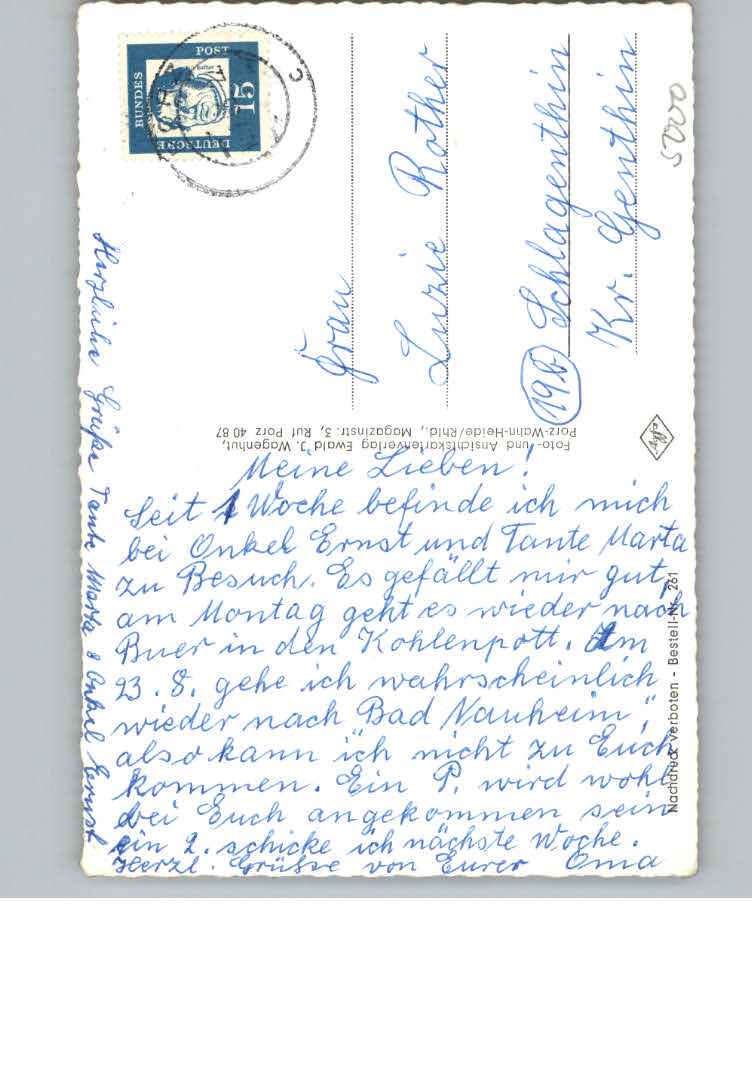 Meine Lieben!
Seit 1 Woche befinde ich mich
bei Onkel Ernst und Tante Marta
zu Besuch. Es gefällt mir gut,
am Montag geht es wieder nach
Buer in den Kohlenpott. Am
23. 8. gehe ich wahrscheinlich
wieder nach Bad Nauheim,
also kann ich nicht zu Euch
kommen. Ein P. wird wohl
bei Euch angekommen sein
ein 2. schicke ich nächste Woche.
Herzl. Grüsse von Eurer Oma
Herzliche Grüße Tante Marta & Onkel Ernst
Frau
Luzie Rother
(19b) Schlagenthin
Kr. Genthin
Foto- und Ansichtskartenverlag Ewald J. Wagenhut,
Porz-Wahn-Heide/Rhld., Magazinstr. 3, Ruf Porz 40 87
Nachdruck verboten - Bestell-Nr. 261
DEUTSCHE
BUNDES
POST
15